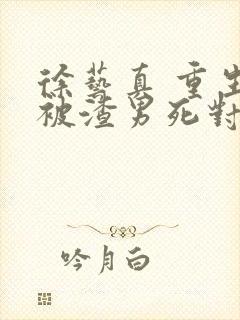 徐藝真 重生
被渣男死對
吟月白